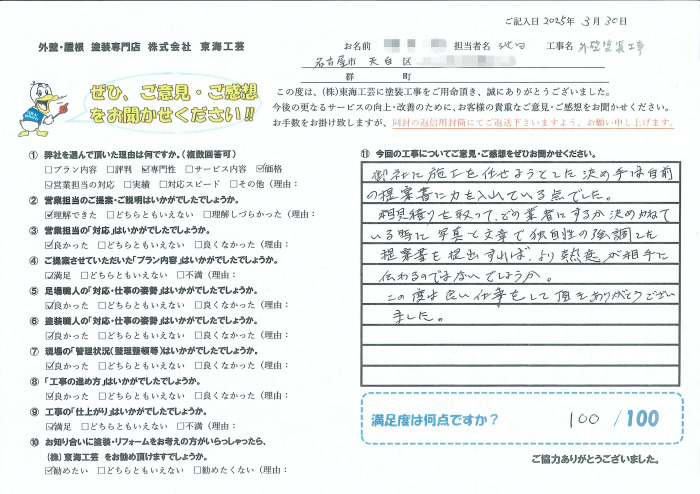 ご記入日 2025年 3月 30日
外壁・屋根 塗装専門店 株式会社 東海工芸
お名前 担当者名 池田 工事名 外壁塗装工事
名古屋市 天白区
郡 町
ぜひ、ご意見・ご感想
をお聞かせください!!
この度は、(株)東海工芸に塗装工事をご用命頂き、誠にありがとうございました。
今後の更なるサービスの向上・改善のために、お客様の貴重なご意見・ご感想をお聞かせください。
お手数をお掛け致しますが、同封の返信用封筒にてご返送下さいますよう、お願い申し上げます。
① 弊社を選んで頂いた理由は何ですか。(複数回答可)
□プラン内容 □評判 ☑専門性 □サービス内容 ☑価格
☑営業担当の対応 □実績 □対応スピード □その他(理由:
② 営業担当のご提案・ご説明はいかがでしたでしょうか。
☑理解できた □どちらともいえない □理解しづらかった(理由:
③ 営業担当の「対応」はいかがでしたでしょうか。
☑良かった □どちらともいえない □良くなかった(理由:
④ ご提案させていただいた「プラン内容」はいかがでしたでしょうか。
☑満足 □どちらともいえない □不満(理由:
⑤ 足場職人の「対応・仕事の姿勢」はいかがでしたでしょうか。
☑良かった □どちらともいえない □良くなかった(理由:
⑥ 塗装職人の「対応・仕事の姿勢」はいかがでしたでしょうか。
☑良かった □どちらともいえない □良くなかった(理由:
⑦ 現場の「管理状況(整理整頓等)はいかがでしたでしょうか。
☑良かった □どちらともいえない □良くなかった(理由:
⑧ 「工事の進め方」はいかがでしたでしょうか。
☑良かった □どちらともいえない □良くなかった(理由:
⑨ 工事の「仕上がり」はいかがでしたでしょうか。
☑満足 □どちらともいえない □不満(理由:
⑩ お知り合いに塗装・リフォームをお考えの方がいらっしゃったら、
(株)東海工芸 をお勧め頂けますでしょうか。
☑勧めたい □どちらともいえない □勧めたくない(理由:
⑪ 今回の工事についてご意見・ご感想をぜひお聞かせください。
御社に施工を任せようとした決め手は自前
の提案書に力を入れている点でした。
相見積りを取って、どの業者にするか決めかねて
いる時に写真と文章で独自性の強調した
提案書を提出すれば、より熱意が相手に
伝わるのではないでしょうか。
この度は良い仕事をして頂きありがとうござい
ました。
満足度は何点ですか? 100 /100
ご協力ありがとうございました。